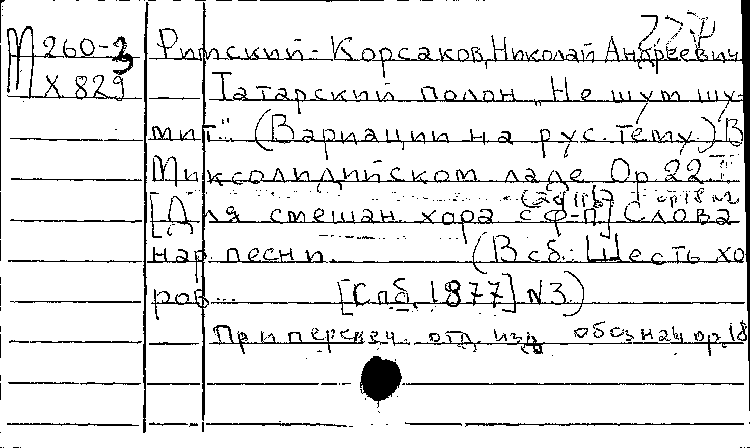 М 260-3 Римский-Корсаков, Николай Андреевич
Х 829 Татарский полон „Не шум шу-
мит.." (Вариации на рус. тему) В
Миксолидийском ладе Op. 22
[Для смешан. хора с ф-п] Слова
нар. песни. (В сб.: Шесть хо
ров... [Спб, 1877] N3)
При первич. отд. изд. обознач. op. 18